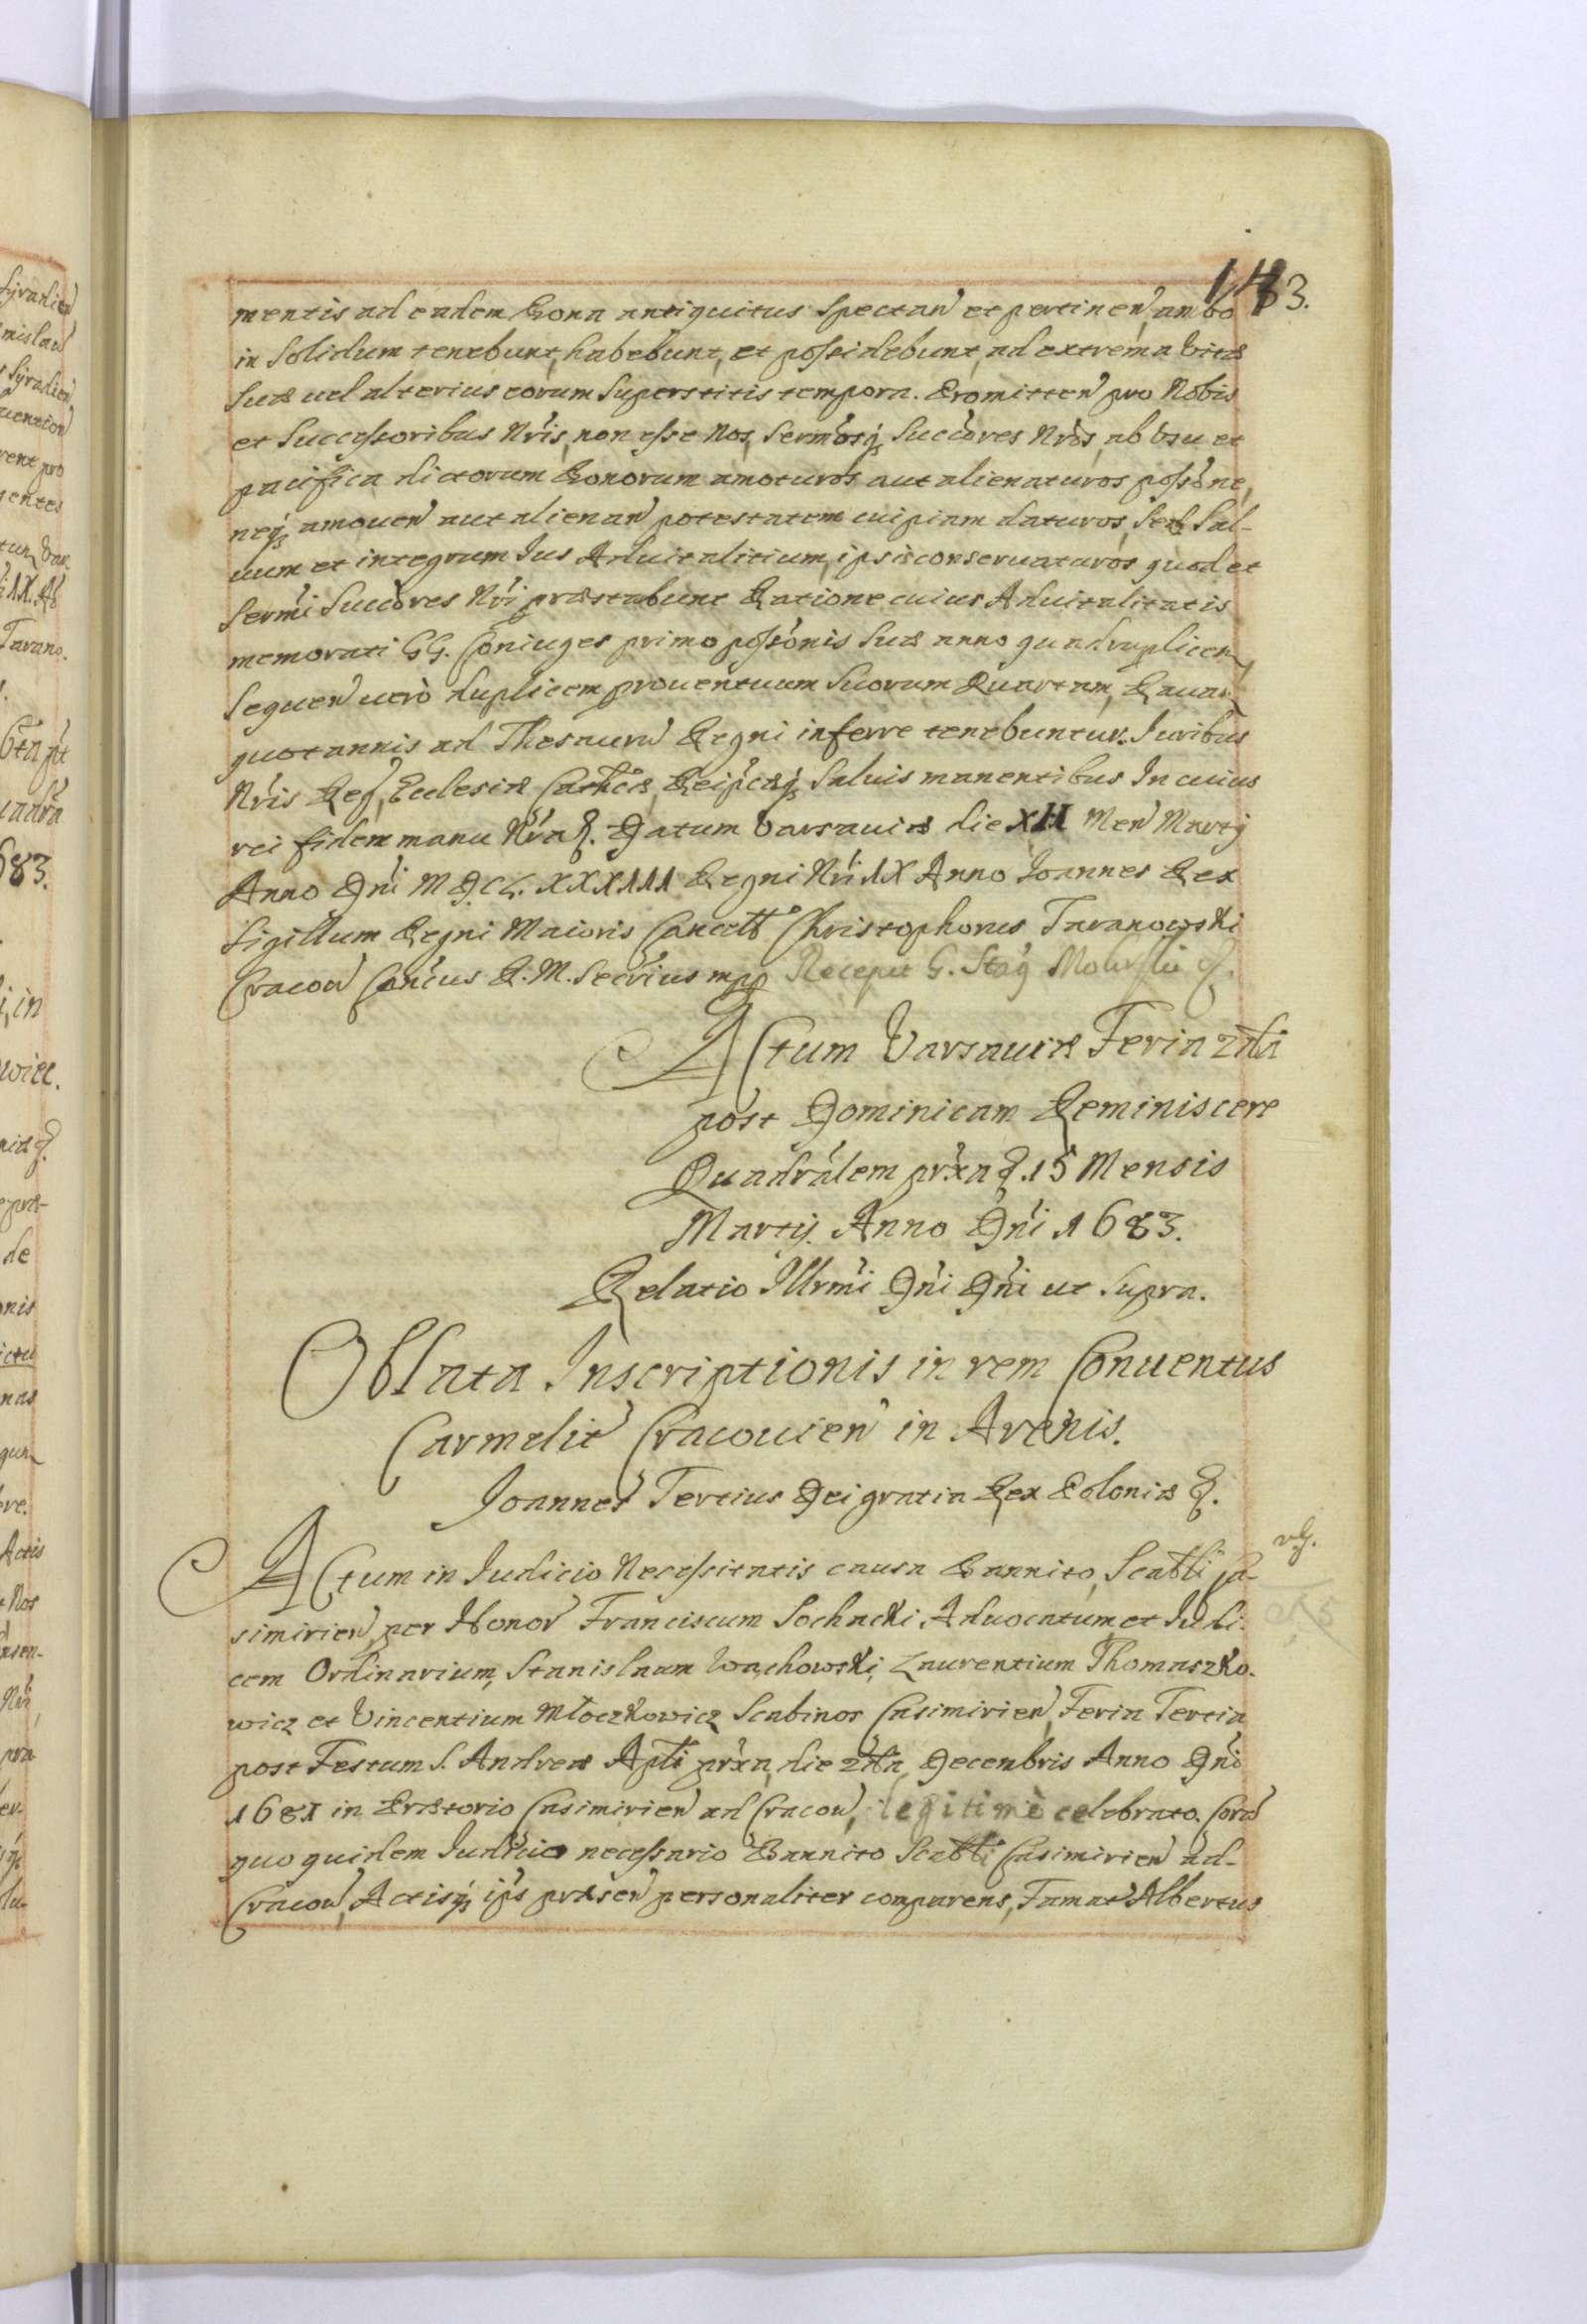 183.
mentis ad eadem Bona antiquitus spectan et pertinen, ambo
in solidum tenebunt, habebunt, et possidebunt, ad extrema vitæ
suæ vel alterius eorum superstitis tempora. Promitten pro Nobis
et Successoribus Nris, non esse Nos, Sermosq₃ Succores Nros, ab usu et
pacifica dictorum Bonorum amoturos aut alienaturos possone,
neq₃ amouen aut alienan potestatem cuipiam daturos, sed sal-
uum et integrum Ius Aduitalitium, ipsis conseruaturos quod et
Sermi Succores Nri præstabunt Ratione cuius Aduitalitatis
memorati GG. Coniuges primo possonis suæ anno quadruplicem,
sequen uero duplicem prouentuum suorum Quartam, Rauam
quotannis ad Thesauru Regni inferre tenebuntur. Iuribus
Nris Reg, Ecclesiæ Cathcæ, Reipcæq₃ saluis manentibus In cuius
rei fidem manu Nra &. Datum Varsauiæ die XII Men Martij
Anno Dni M.D.C.L.XXXIII Regni Nri IX Anno Joannes Rex
Sigillum Regni Maioris Cancell Christophorus Taranowski
Cracou Cancus R. M. Secrius mpp Recepit G. Stan
ACtum Varsauiæ Feria 2da
post Dominicam Reminiscere
Quadralem prxa &. 15 Mensis
Martij. Anno Dni 1683.
Relatio Illrmi Dni Dni ut supra.
OBlata Inscriptionis in rem Conuentus
Carmelit Cracouien in Arenis.
Joannes Tertius Dei gratia Rex Poloniæ &.
ACtum in Iudicio Necessitatis causa Bannito, Scabli Ca-
simirien, per Honor Franciscum Sochacki, Aduocatum, et Iudi-
cem Ordinarium, Stanislaum Wachowski, Laurentium Thomaszko-
wicz et Vincentium Młoczkowicz Scabinos Casimirien, Feria Tertia
post Festum S. Andreæ Apli prxa, die 2da Decembris Anno Dni
1681 in Prætorio Casimirien ad Cracou, legitimè celebrato. Cora
quo quidem Iudicio necessario Bannito Scabli Casimirien ad-
Cracou, Actisq₃ ips præsen personaliter comparens, Famat Albertus